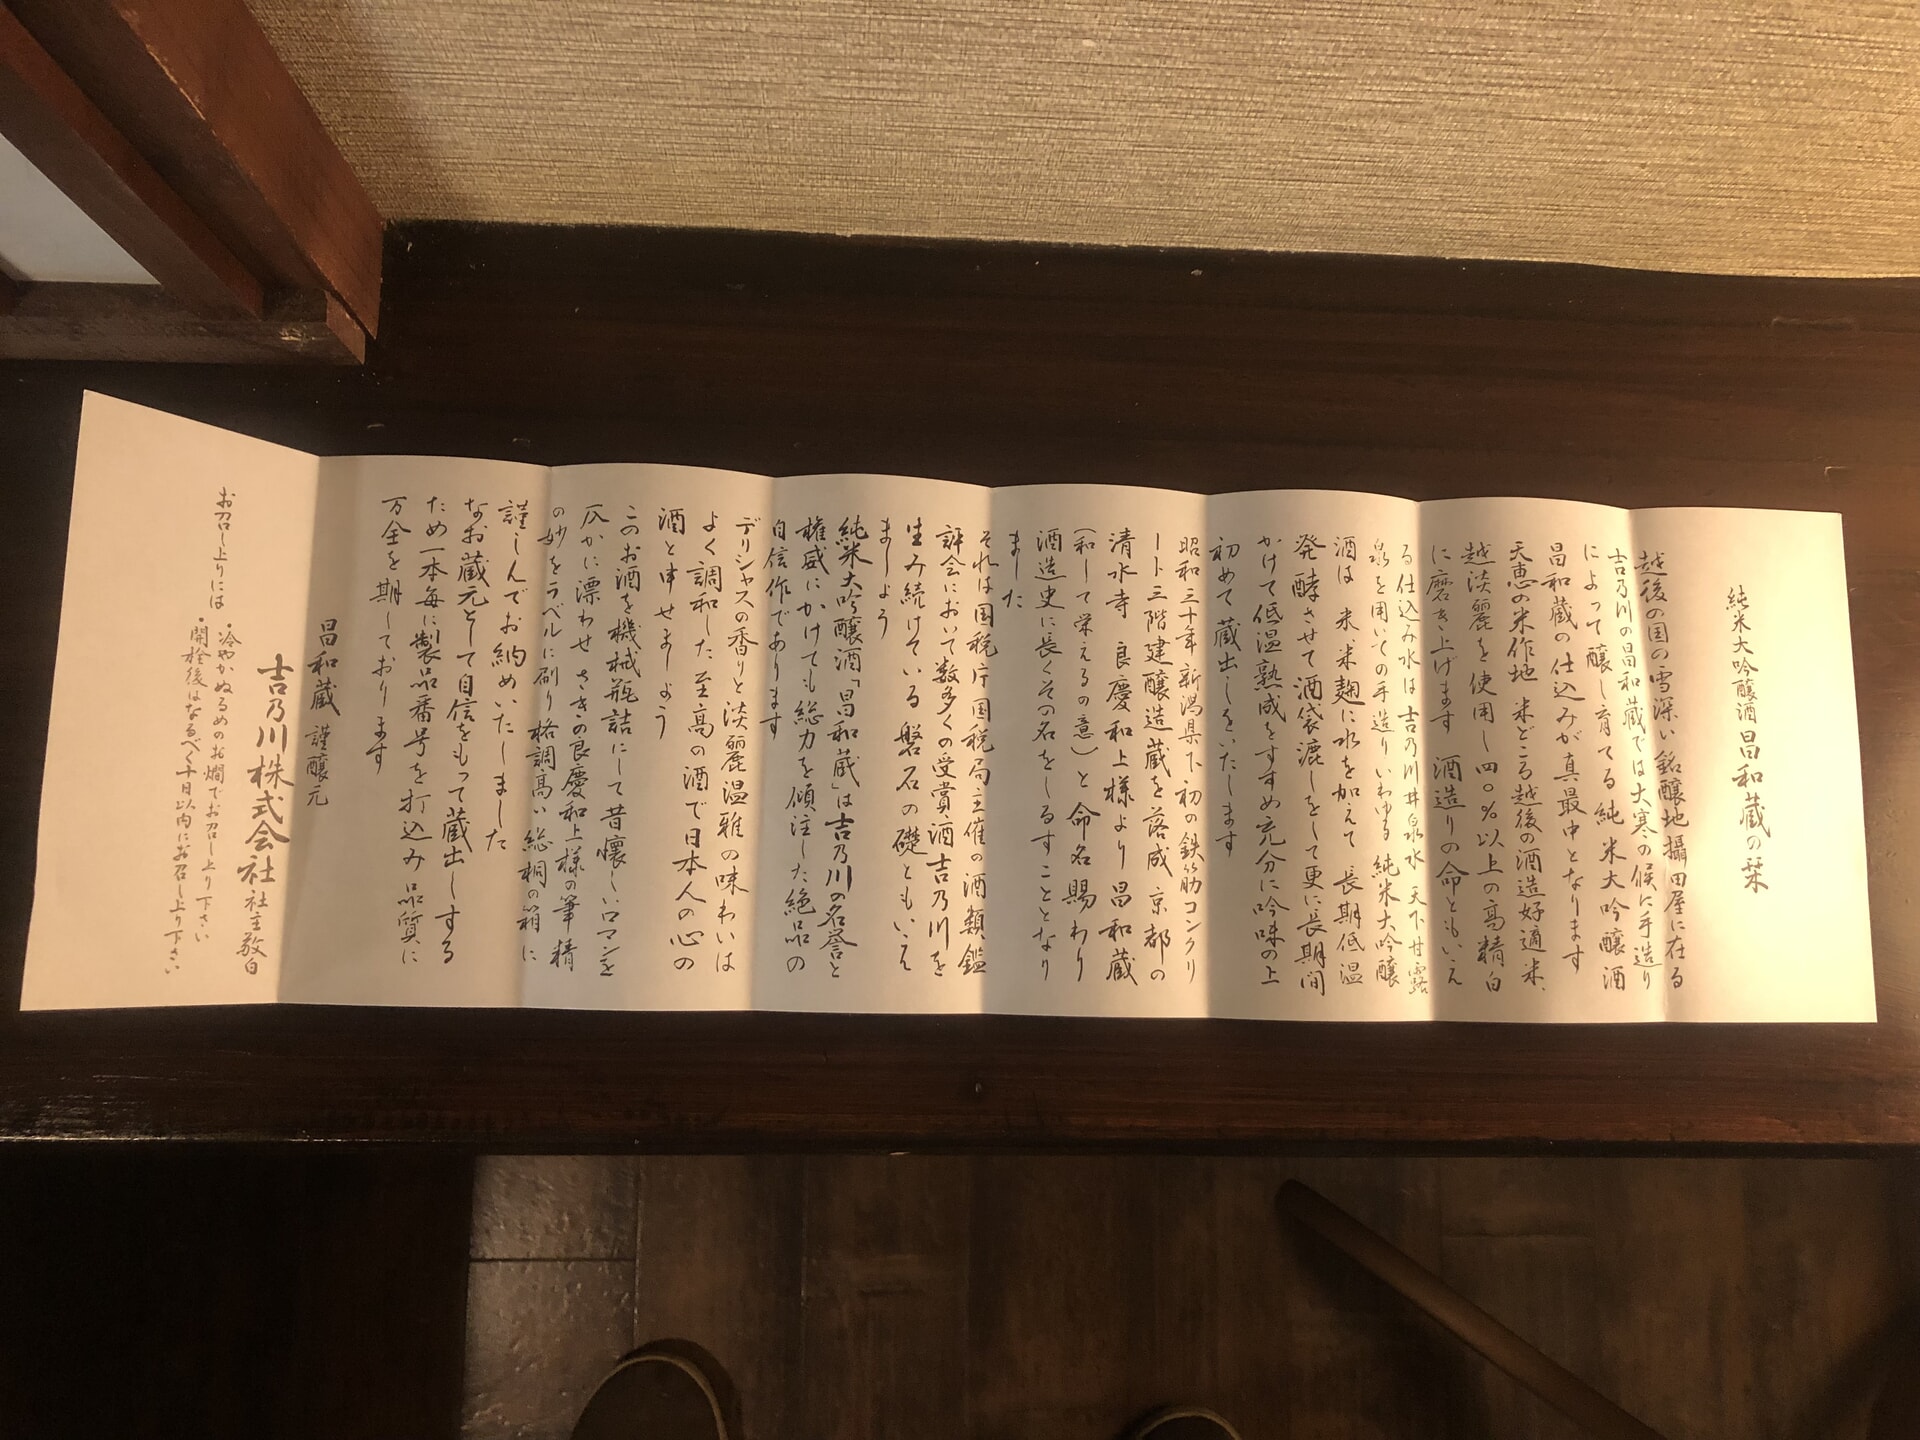 純米大吟醸酒昌和蔵の栞
越後の国の雪深い銘醸地攝田屋に在る
吉乃川の昌和蔵では大寒の候に手造り
によって醸し育てる純米大吟醸酒
昌和蔵の仕込みが真最中となります
天恵の米作地 米どころ越後の酒造好適米、
越淡麗を使用し四〇%以上の高精白
に磨き上げます 酒造りの命ともいえ
る仕込み水は吉乃川井泉水 天下甘露
泉を用いての手造りいわゆる純米大吟醸
酒は 米、米麹に水を加えて 長期低温
発酵させて酒袋漉しをして更に長期間
かけて低温熟成をすすめ充分に吟味の上
初めて蔵出しをいたします
昭和三十年新潟県下初の鉄筋コンクリ
ート三階建醸造蔵を落成 京都の
清水寺 良慶和上様より昌和蔵
(和して栄えるの意)と命名賜わり
酒造史に長くその名をしるすこととなり
ました
それは国税庁国税局主催の酒類鑑
評会において数多くの受賞酒吉乃川を
生み続けている磐石の礎ともいえ
ましょう
純米大吟醸酒「昌和蔵」は吉乃川の名誉と
権威にかけても総力を傾注した絶品の
自信作であります
デリシャスの香りと淡麗温雅の味わいは
よく調和した至高の酒で日本人の心の
酒と申せましょう
このお酒を機械瓶詰にして昔懐しいロマンを
仄かに漂わせ さきの良慶和上様の筆精
の妙をラベルに刷り格調高い総桐の箱に
謹しんでお納めいたしました
なお蔵元として自信をもって蔵出しする
ため一本毎に製品番号を打込み品質に
万全を期しております
昌和蔵 謹醸元
吉乃川株式会社 社主敬白
お召し上りには ・冷やかぬるめのお燗でお召し上り下さい
・開栓後はなるべく十日以内にお召し上り下さい